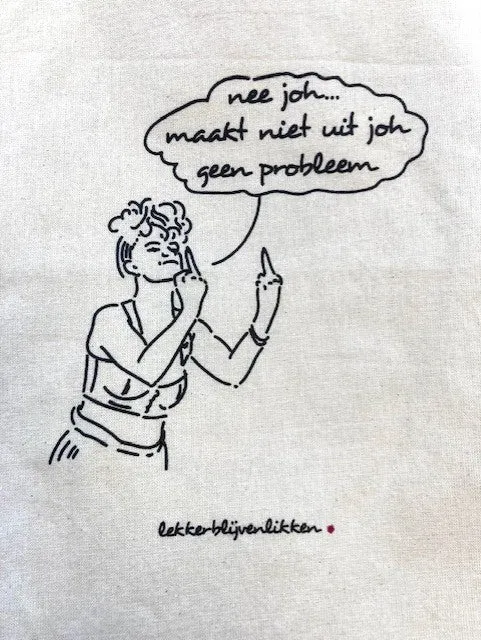 nee joh...
maakt niet uit joh
geen probleem
lekkerblijvenlikken